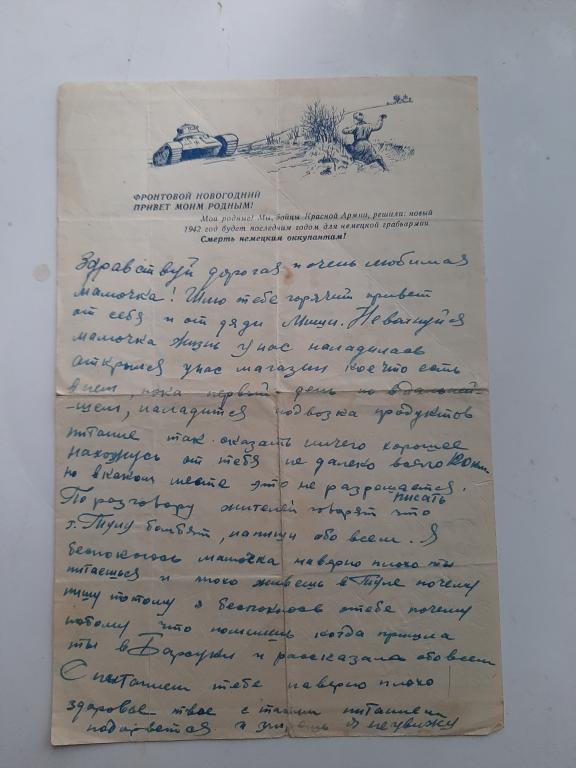 ФРОНТОВОЙ НОВОГОДНИЙ
ПРИВЕТ МОИМ РОДНЫМ!
Мои родные! Мы, бойцы Красной Армии, решили: новый
1942 год будет последним годом для немецкой грабьармии.
Смерть немецким оккупантам!
Здравствуй дорогая и очень любимая
мамочка! Шлю тебе горячий привет
от себя и от дяди Миши. Неволнуйся
мамочка жизнь у нас наладилась
открылся унас магазин кое что есть
в нем, пока первый день но вдальней-
-щем, наладится подвозка продуктов
питание так сказать ничего хорошее
нахожусь от тебя не далеко всего
но вкаком месте это не разрешается.
писать
По разговору жителей говорят что
г. Тулу бомбят, напиши обо всем. Я
беспокоюсь мамочка наверно плохо ты
питаешься и живешь в Туле почему
пишу потому я беспокоюсь отебе почему
потому что помнишь когда пришла
ты в Барсуки и рассказала обо всем
С питанием тебе наверно плохо
здоровье твое с таким питанием
подорвется и я неувижу